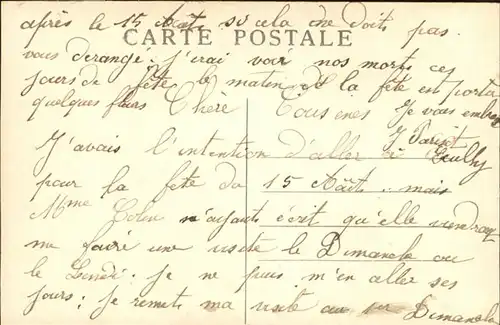 après le 15 Août si cela ne doit pas
CARTE POSTALE
vous deranger. j'irai voir nos morts ces
jours de fête le matin de la fête est porter
quelques fleurs Chère Je vous embrasse
J Parisot
J'avais l'intention d'aller à Neuilly
pour la fête du 15 Août. mais
Mme Colin n'ayant écrit qu'elle viendrai
me faire une visite le Dimanche ou
le Lundi. je ne puis m'en aller ses
jours: je remets ma visite au 1er Dimanche